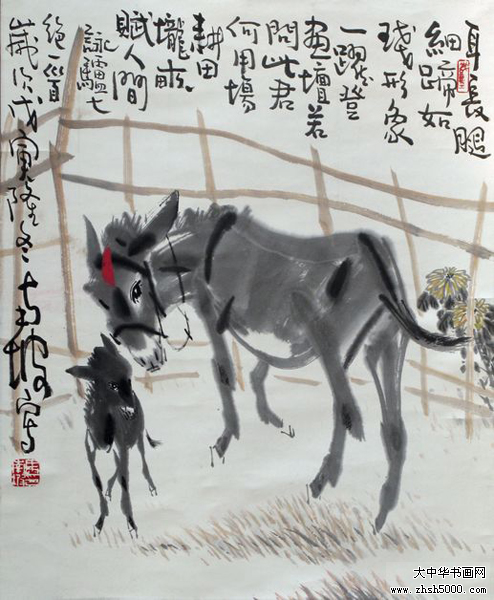 耳長腿
細蹄如
形象
一躍登
畫壇若
問此君
何用場
耕田
壠畝
賦人間
詠驢七
絕一首
歲次戊寅隆冬坡寫
大中华书画网
www.zhsh5000.com